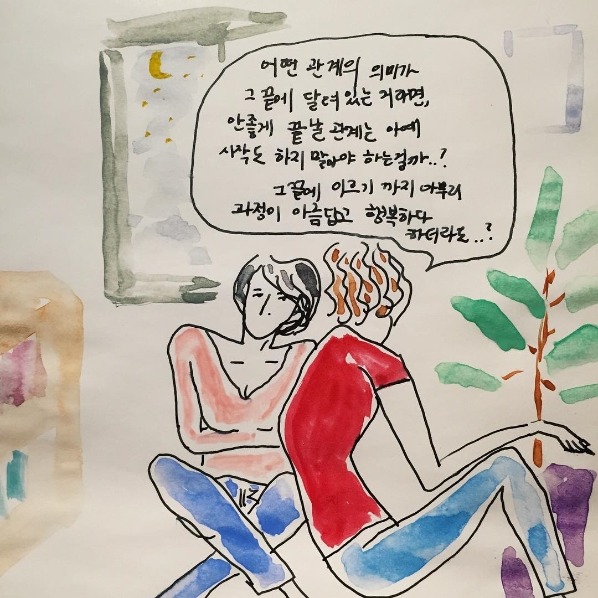 어떤 관계의 의미가
그 끝에 달려 있는 거라면,
안좋게 끝날 관계는 아예
시작도 하지 말아야 하는걸까..?
그끝에 이르기 까지 아무리
과정이 아름답고 행복하다
하더라도..?